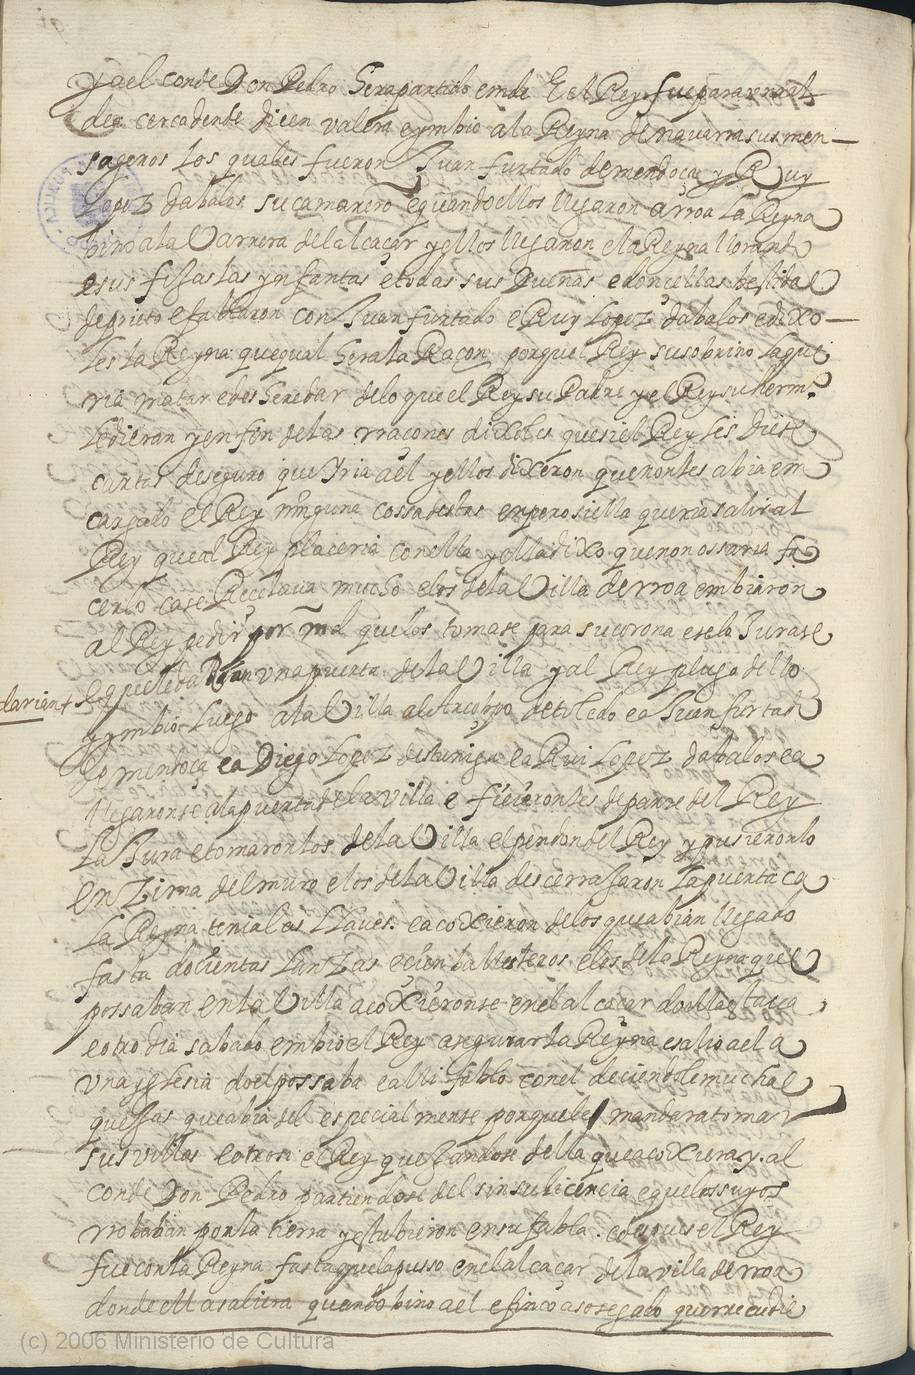 ya el conde Don Pedro hera partido ende E el Rey fue para una al
dea cerca dende dicen valera e ymbio a la Reyna de navarra sus men-
sageros los quales fueron Juan furtado de mendoça y Ruy
Lopez dabalos su camarero e quando ellos llegaron a rroa la Reyna
bino a la Varrera del alcaçar y ellos llegaron e la Reyna llorando
e sus fijas las ynfantas e todas sus Dueñas e doncellas bestidas
de prieto e fablaron con Juan furtado e Ruy Lopez dabalos e dixo-
les la Reyna que qual hera la Raçon porque l Rey su sobrino la que
ria matar e desheredar de lo que el Rey su Padre y el Rey su herm.º
le dieran y en fin de las rraçones dixoles que si el Rey les diese
cartas de seguro que Yria a el y ellos dixeron que non les abia en
cargado el Rey ninguna cossa destas empero si ella queria salir al
Rey que al Rey placeria con ella y ella dixo que non ossaria fa
cerlo ca se Recelava mucho e los de la Villa de rroa embiaron
al Rey pedir por mrd que los tomase para su corona e se lo Jurase
e que le darian una puerta de la Villa y al Rey plugo dello
darian+
y ymbio luego a la Villa al Arcobpo de toledo e a Juan furtado
de mendoça e a Diego Lopez destuniga e a Rui Lopez dabalos e a
llegaronse a la puerta de la villa e ficieronles de parte del Rey
La Jura e tomaron los de la Villa el pendon del Rey y pusieronlo
en Zima del muro e los de la Villa descerrajaron la puerta ca
La Reyna tenia las Llaves. e acoxieron de los que abian llegado
fasta docientas Lanzas e cien ballesteros e los de la Reyna que
possaban en la Villa acoxieronse en el alcaçar do ella estava
e otro dia sabado embio el Rey asegurar la Reyna e salio a el a
una yglesia do el possaba e alli fablo con el deciendole muchas
quejas que abia del especialmente porque le mandara tomar
sus villas e otrosi el Rey quejandose della que acoxiera y. al
conde Don Pedro partiendose del sin su licencia e que los suyos
rrobaban por la tierra y estubieron en su fabla. e despues el Rey
fue con la Reyna fasta que la pusso en el alcaçar de la villa de rroa
donde ella saliera quando bino a el e finco asosegado que
(c) 2006 Ministerio de Cultura